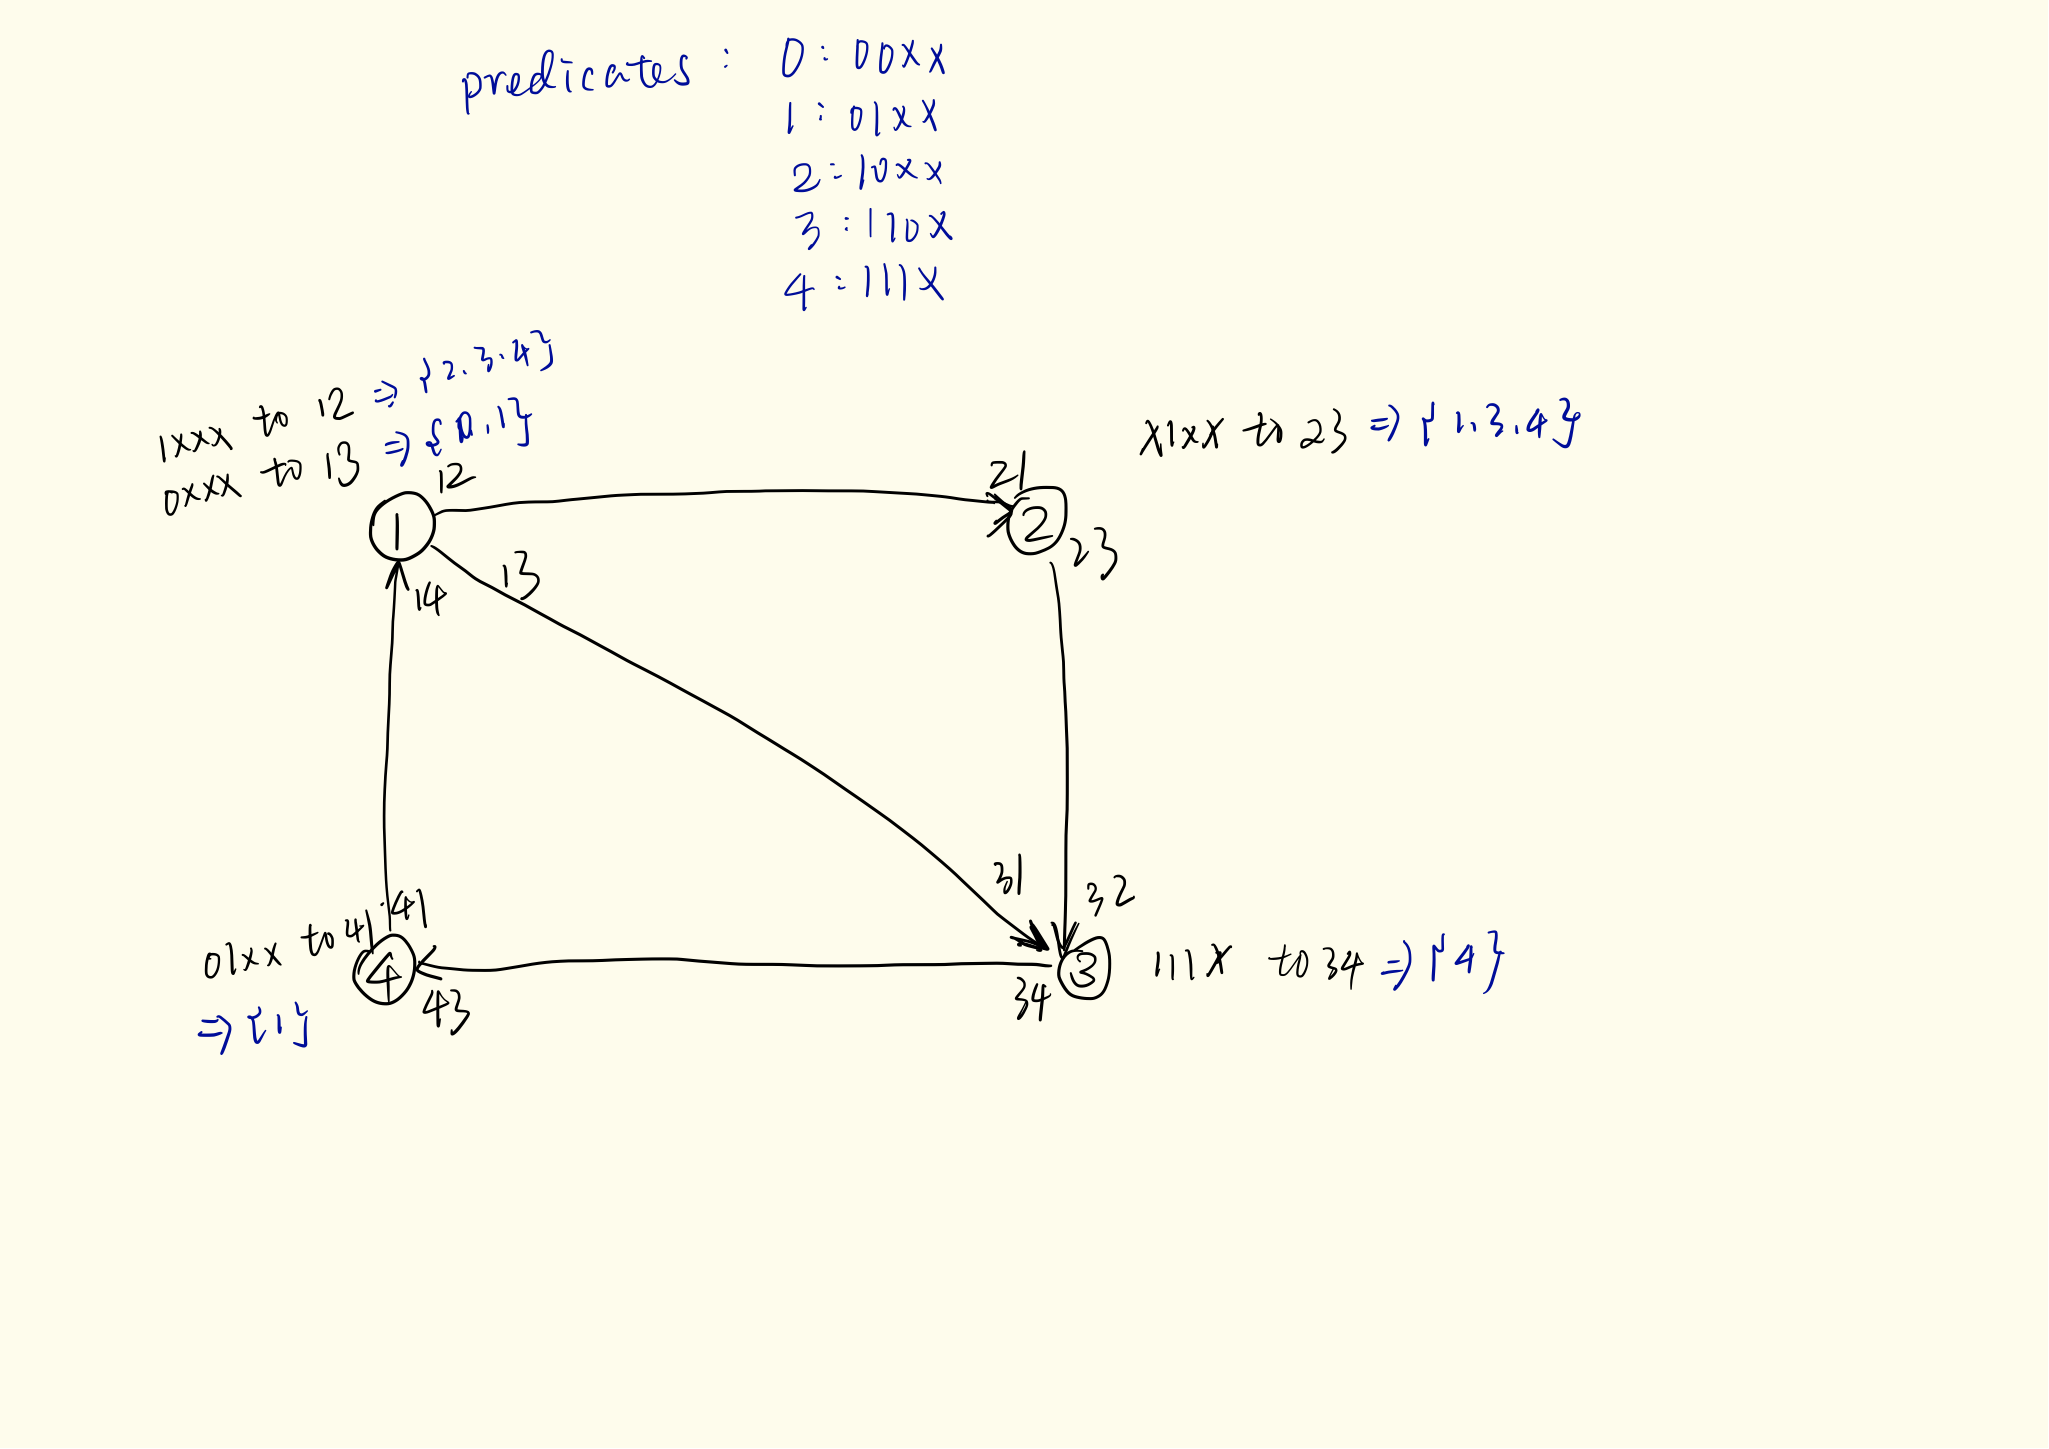 predicates : 0 : 00xx
1 : 01xx
2 : 10xx
3 : 110x
4 : 111x
1xxx to 12 => {2.3.4}
0xxx to 13 => {0.1}
x1xx to 23 => {1.3.4}
12
21
1
2
23
13
14
31
32
41
01xx to 41
4
3
111x to 34 => {4}
43
34
=> {1}